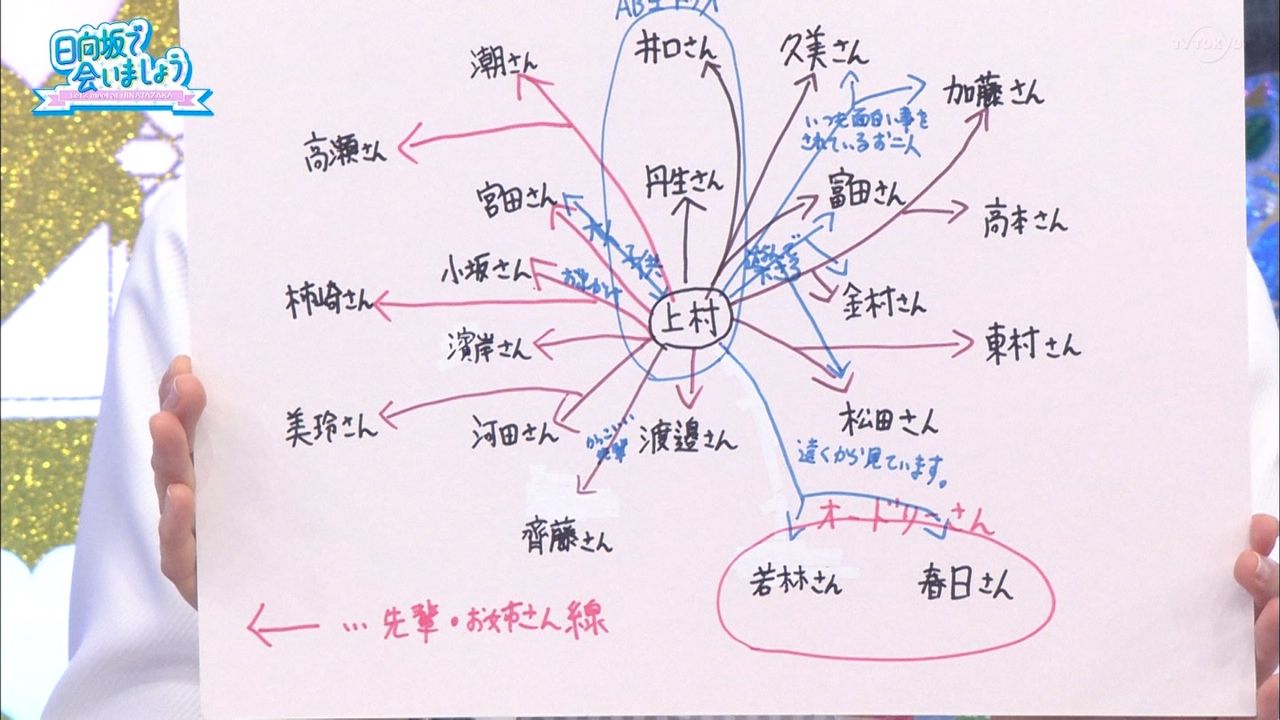 日向坂で
会いましょう
TV TOKYO
潮さん
井口さん
久美さん
加藤さん
いつも面白い事を
されているお二人
高瀬さん
宮田さん
丹生さん
富田さん
高本さん
小坂さん
柿崎さん
上村
金村さん
濱岸さん
東村さん
美玲さん
河田さん
渡邉さん
松田さん
かっこいい
先輩
遠くから見ています。
齊藤さん
オードリーさん
若林さん
春日さん
… 先輩・お姉さん線